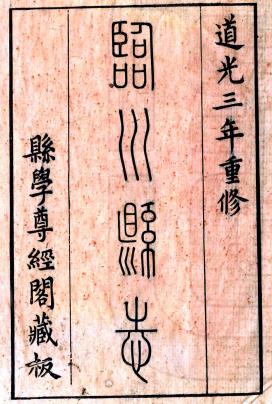 道光三年重修
臨川縣志
縣學尊經閣藏板